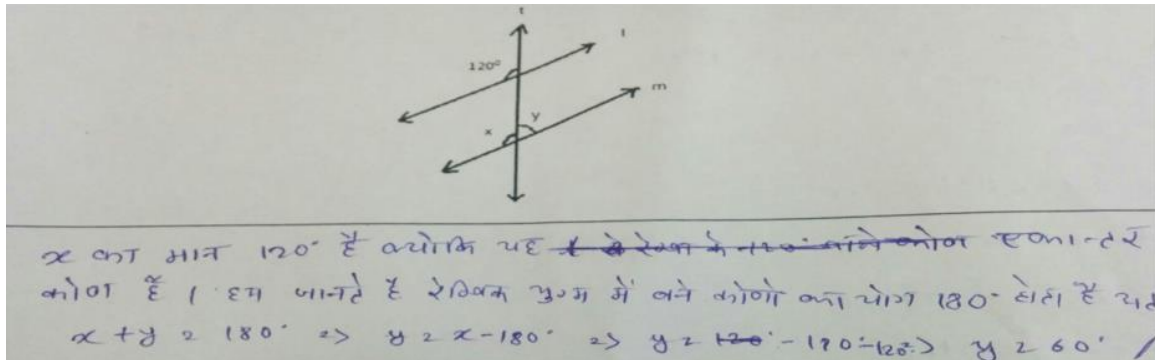 t
l
120°
m
y
x
x का मान 120° है क्योकि यह एकान्तर
कोण हैं । हम जानते है रेखिक युग्म में बने कोणो का योग 180° होता है यह
x + y = 180° => y = x - 180° => y = 120° - 180° - 120° => y = 60° /